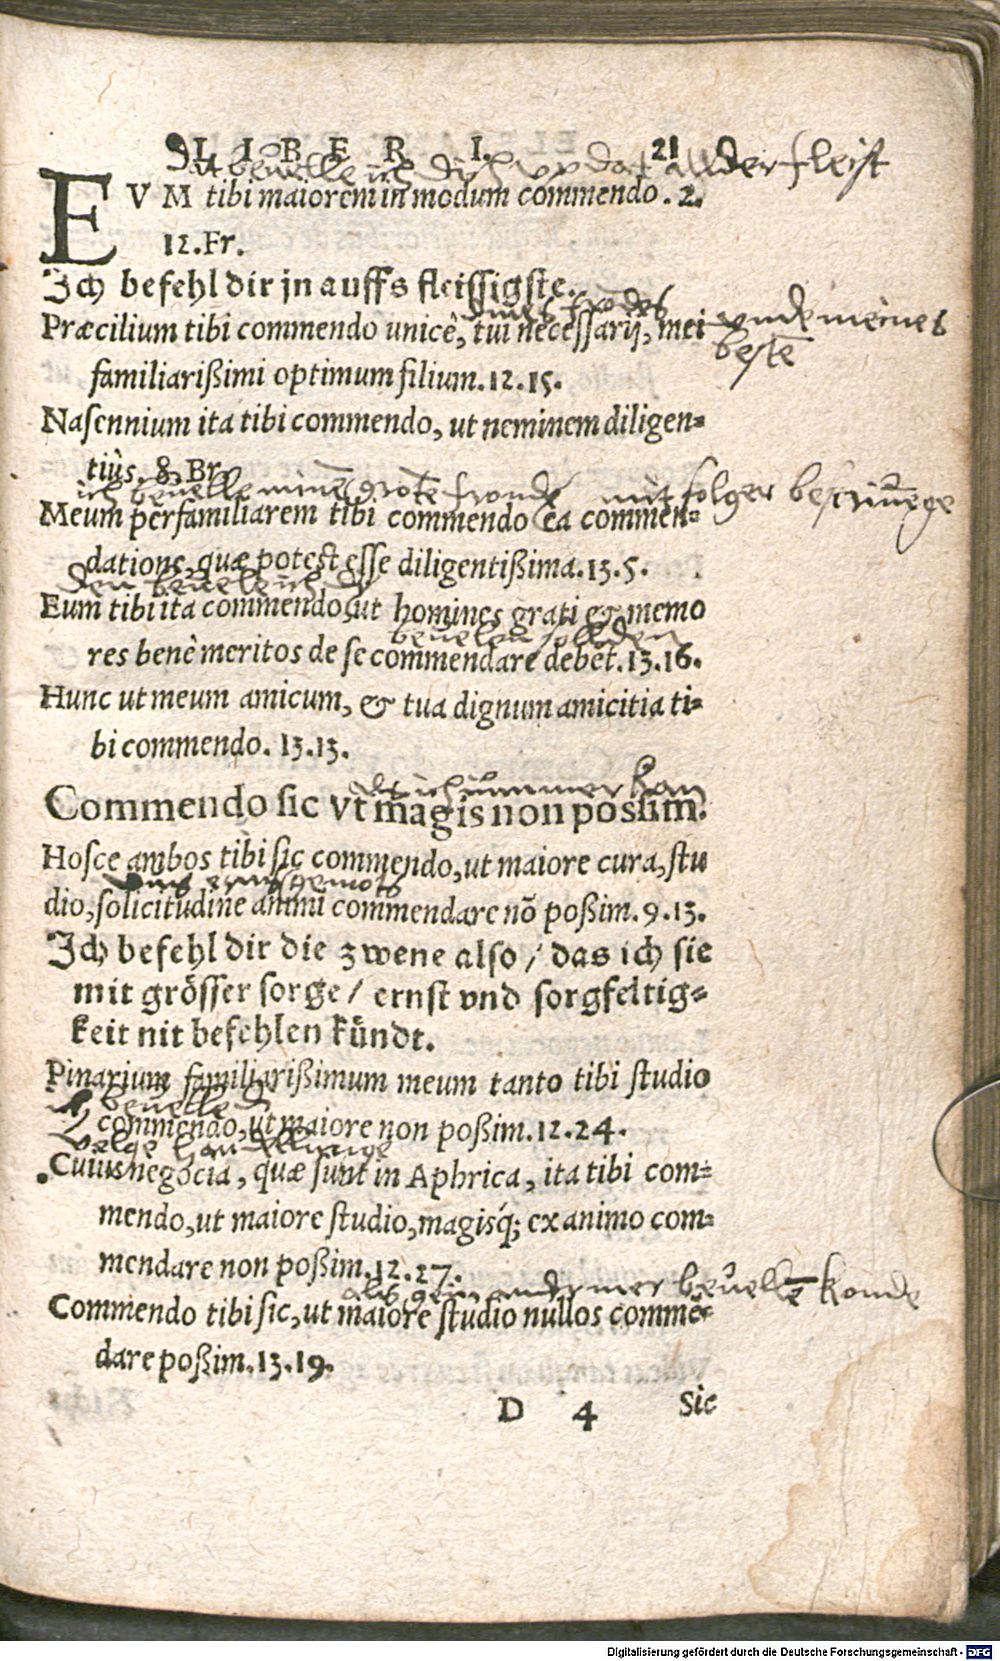 LIBER I. 21
Dit beuelle ich dich vp dat aller fleist
EVM tibi maiorem in modum commendo. 2.
12. Fr.
Ich befehl dir jn auffs fleissigste.
dines frondes
Præcilium tibi commendo unicè, tui necessarij, mei vnde meines
beste
familiarißimi optimum filium. 12. 15.
Nasennium ita tibi commendo, ut neminem diligen-
tiùs. 8. Br.
ich beuelle minē grotē fronde mit solger bescriuēge
Meum perfamiliarem tibi commendo ea commen-
datione, quæ potest esse diligentißima. 13. 5.
den beuele ich di
Eum tibi ita commendo, ut homines grati & memo
beuelen solden
res benè meritos de se commendare debet. 13. 16.
Hunc ut meum amicum, & tua dignum amicitia ti-
bi commendo. 13. 13.
als ich ummer kan
Commendo sic vt magis non possim.
Hosce ambos tibi sic commendo, ut maiore cura, stu
gemots
dio, solicitudine animi commendare nõ poßim. 9. 13.
Ich befehl dir die zwene also / das ich sie
mit grösser sorge / ernst vnd sorgfeltig-
keit nit befehlen kündt.
Pinarium familiarißimum meum tanto tibi studio
ich beuelle di
commendo, ut maiore non poßim. 12. 24.
velge handellinge
Cuius negocia, quæ sunt in Aphrica, ita tibi com-
mendo, ut maiore studio, magisq́; ex animo com-
mendare non poßim. 12. 27.
als gein ander mer beuellē konde
Commendo tibi sic, ut maiore studio nullos commē-
dare poßim. 13. 19.
D 4 Sic
Digitalisierung gefördert durch die Deutsche Forschungsgemeinschaft - DFG